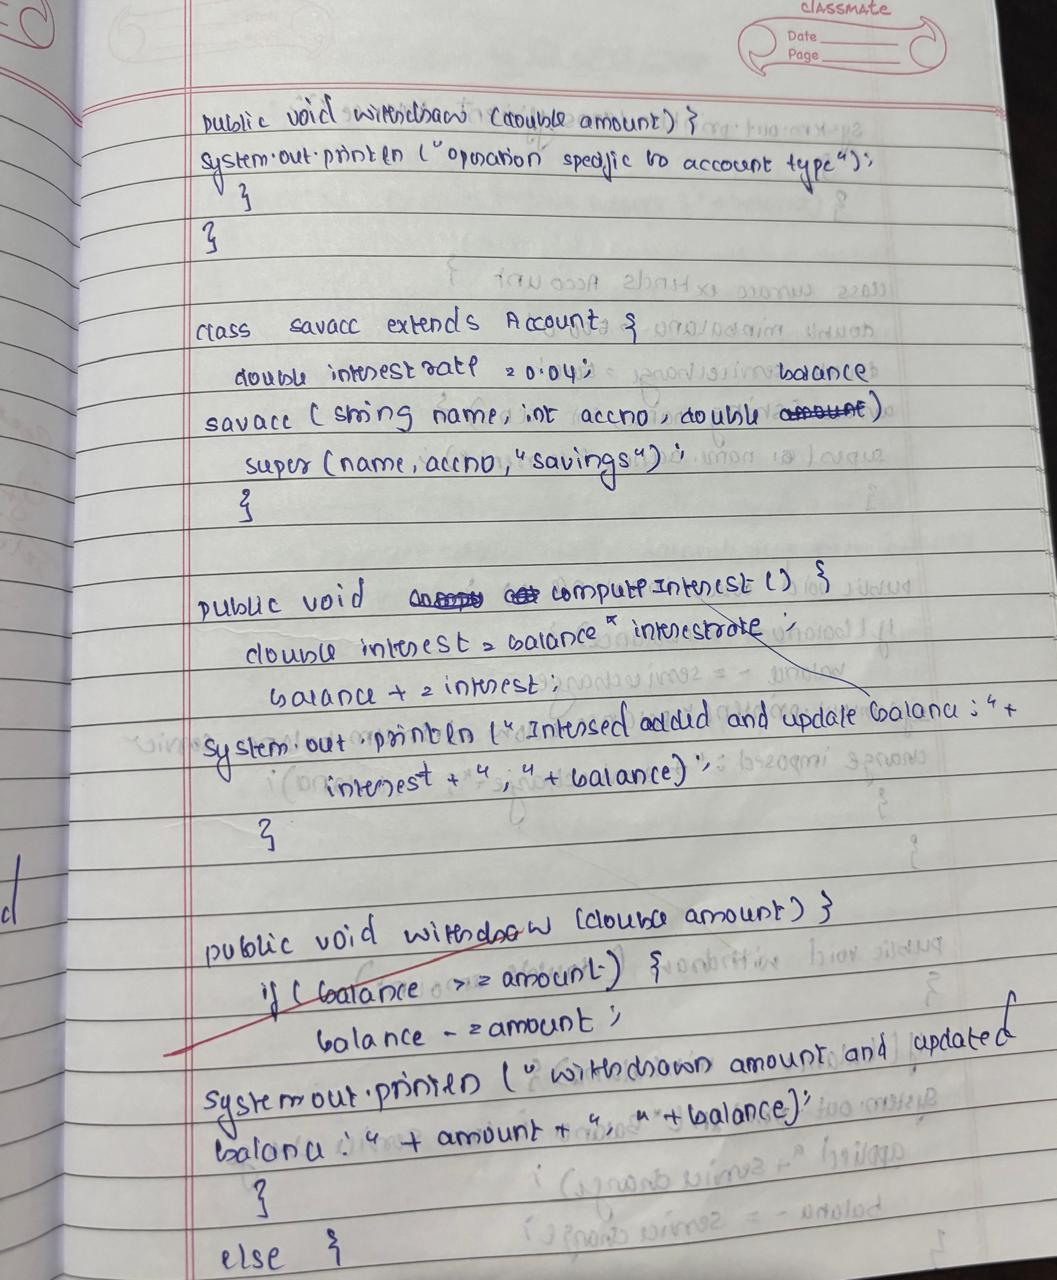 classmate
Date
Page
public void withdraw (double amount) }
System.out.println ("operation specific to account type");
}
}
class savacc extends Account {
double interestrate = 0.04;
balance
savacc (string name, int accno, double amount)
super (name, accno, "savings");
}
public void computeInterest () {
double interest = balance * interestrate;
balance += interest;
System.out.println ("Interesed added and update balance : " +
interest + ", " + balance);
}
public void withdraw (double amount) }
if (balance >= amount) {
balance -= amount;
System out.println (" withdrawn amount and updated
balance : " + amount + ", " + balance);
}
else {